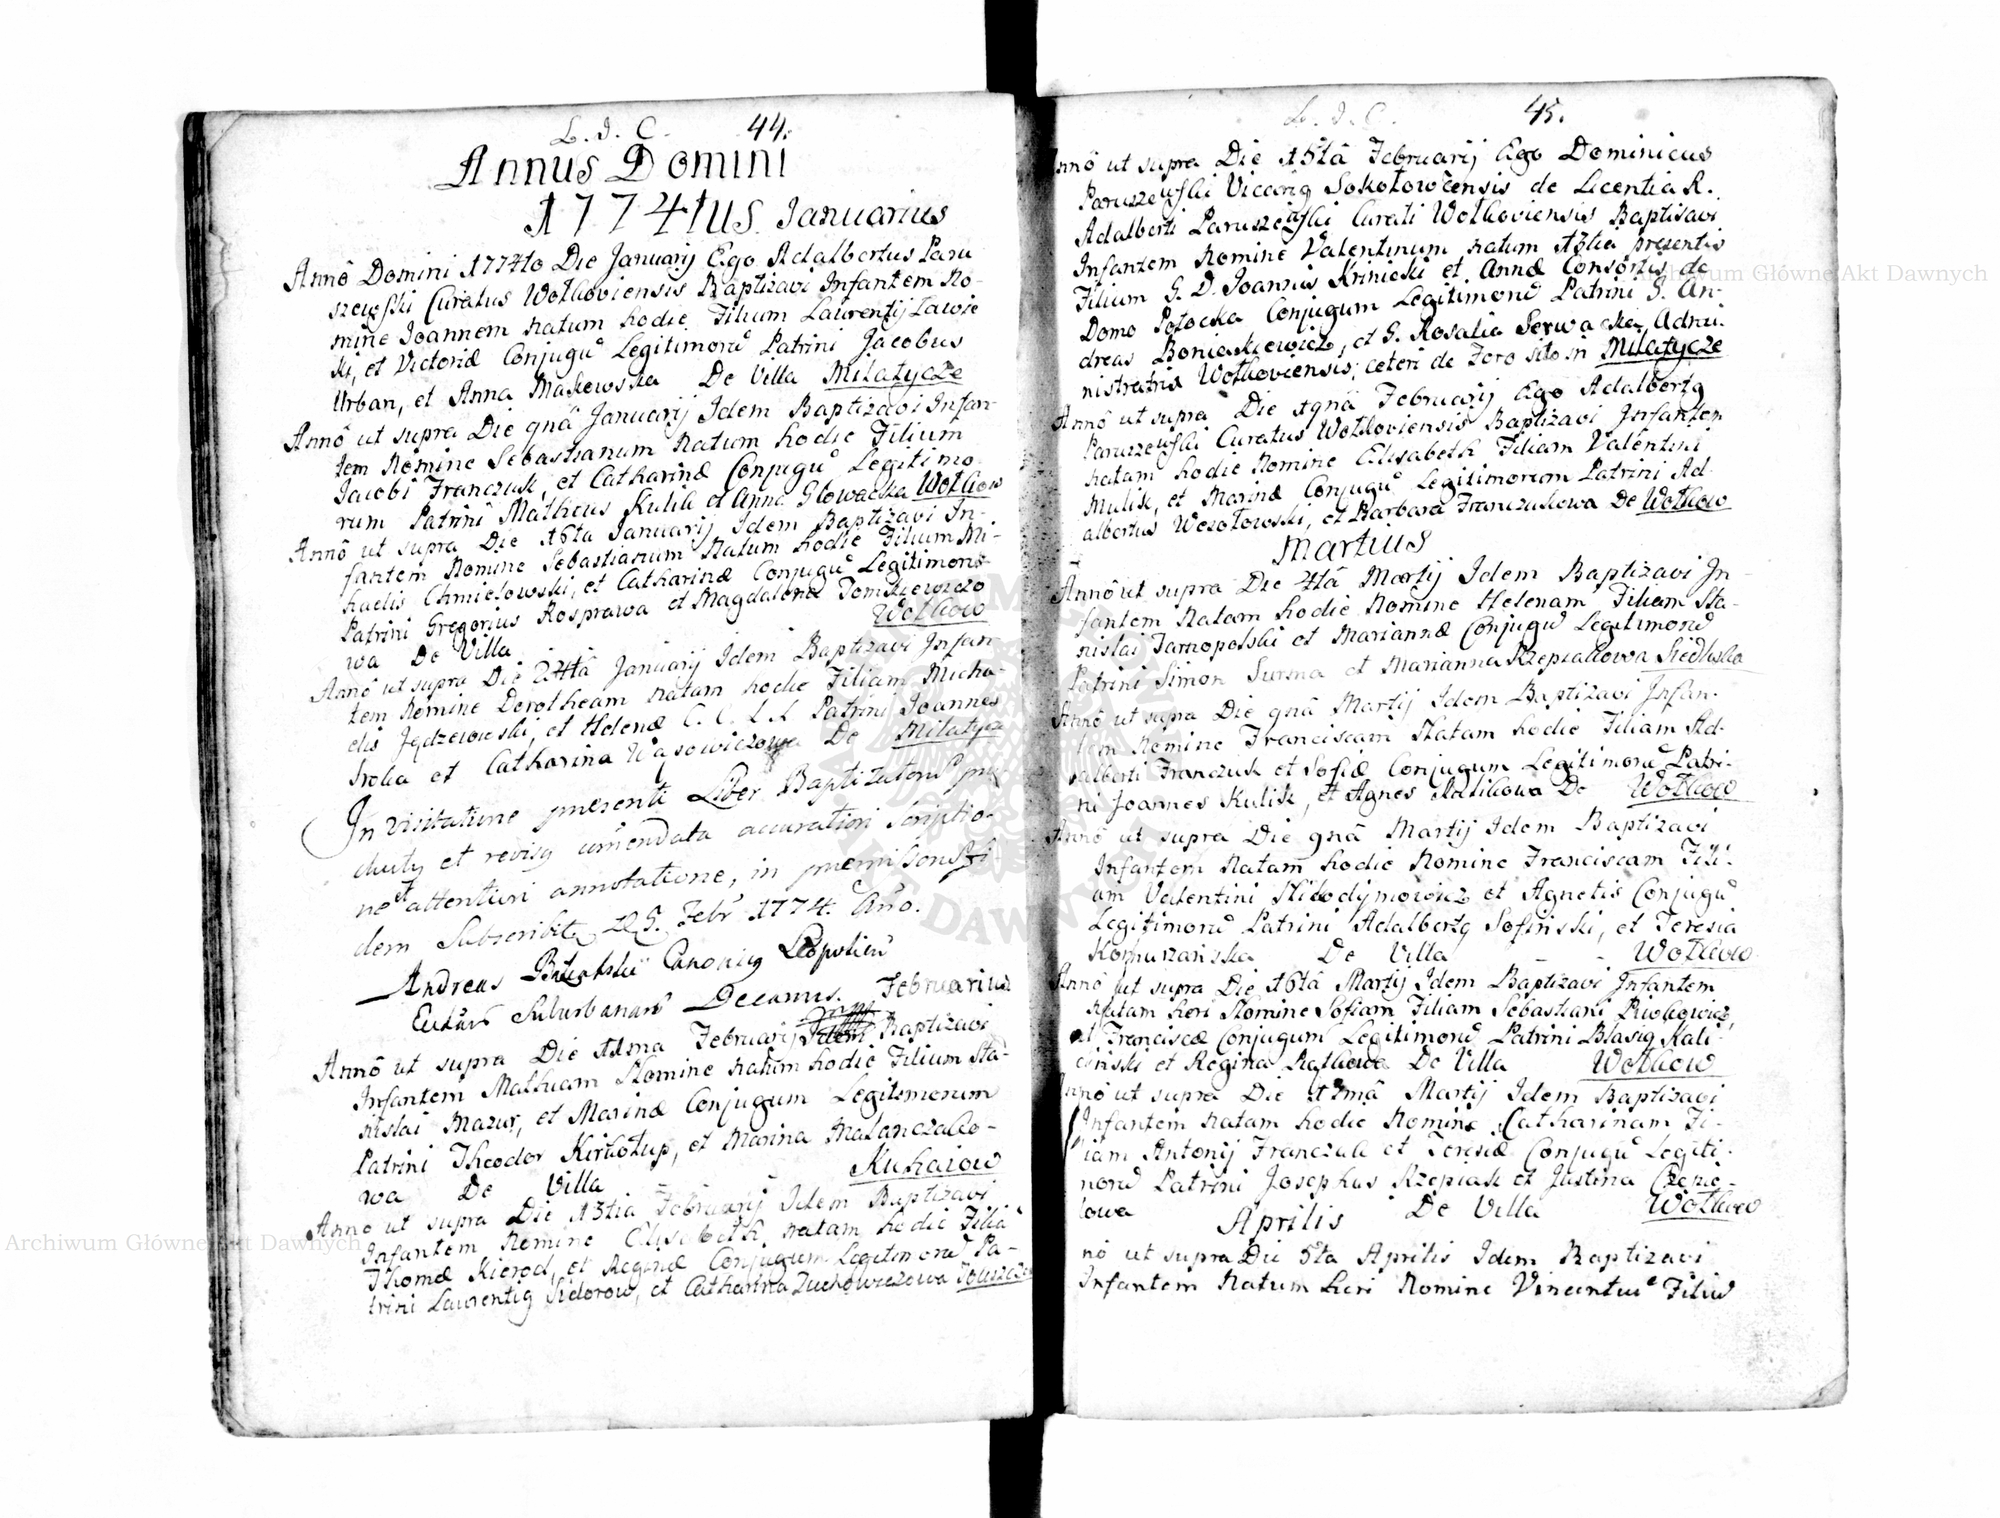 L. J. C. 44.
Annus Domini
1774tus Januarius
Annô Domini 1774to Die Januarij Ego Adalbertus Paru
szewski Curatus Wołkoviensis Baptizavi Infantem No-
mine Joannem natum hodie Filium Laurentij Ławic
ki, et Victoriæ Conjugū Legitimorū Patrini Jacobus
Urban, et Anna Makowska De Villa Milatycze
Annô ut supra Die 9nâ Januarij Idem Baptizavi Infan-
tem Nomine Sebastianum Natum hodie Filium
Jacobi Franczuk, et Catharinæ Conjugū Legitimo
rum Patrini Matheus Kulik et Anna Głowacka Wołkow
Annô ut supra Die 16ta Januarij Idem Baptizavi In-
fantem Nomine Sebastianum Natum hodie Filium Mi-
haelis Chmielowski, et Catharinæ Conjugū Legitimorū
Patrini Gregorius Rosprawa et Magdalena Tomkiewiczo
wa De Villa Wołkow
Annô ut supra Die 24tâ Januarij Idem Baptizavi Infan
tem Nomine Dorotheam natam hodie Filiam Micha-
elis Jędzejowski, et Helenæ C. C. L. L Patrini Joannes
Sroka et Catharina Wąsowiczowa De Milatycz
In visitatione præsenti Liber Baptizatorū pro
ductq et revisq cōmendata accuratiori scriptio-
ne et attentiori annotatione, in præmisorū fi
dem Subscribitq D 5. Febr 1774. Año.
Andreas Canonicq Leopolien
Suburbanarū Decanus. Februarius
Annô ut supra Die 11ma Februarij Idem Baptizavi
Infantem Mathiam Nomine natum hodie Filium Sta-
nislai Mazur, et Marinæ Conjugum Legitimorum
Patrini Theodor Kirkołup, et Marina Malanczako-
wa De Villa Kuhaiow
Anno ut supra Die 13tia Februarij Idem Baptizavi
Infantem Nomine Elisabeth, natam hodie Filiā
Thomæ Kierod, et Reginæ Conjugum Legitimorū Pa-
trini Laurentiq Sidorow, et Catharina Zuchowiczowa
L. J. C. 45.
Annô ut supra Die 15tâ Februarij Ego Dominicus
Paruszewski Vicariq Sokołowcensis de Licentia R.
Adalberti Paruszewski Curati Wołkoviensis Baptisavi
Infantem Nomine Valentinum natum 13tia præsentis
Filium G. D. Joannis Krinicki et Annæ Consortis de
Domo Potocka Conjugum Legitimorū Patrini G. An-
dreas Boniakiewicz, et G. Rosalia Serwacka, Admi-
nistratrix Wołkoviensis, ceteri de Foro sito in Milatycze
Annô ut supra Die 19nâ Februarij Ego Adalbertq
Paruszewski Curatus Wołkoviensis Baptizavi Infantem
natam hodie Nomine Elisabeth Filiam Valentini
Mulik, et Marinæ Conjugū Legitimorum Patrini Ad-
albertus Wesołowski, et Barbara Franczukowa De Wołkow
Martius
Annô ut supra Die 4tâ Martij Idem Baptizavi In-
fantem Natam hodie Nomine Helenam Filiam Sta-
nislai Tarnopolski et Mariannæ Conjugū Legitimorū
Patrini Simon Surma et Marianna Rzepiakowa Siedliska
Annô ut supra Die 9nâ Martij Idem Baptizavi Infan-
tem Nomine Franciscam Natam hodie Filiam Ad-
alberti Franczuk et Sofiæ Conjugum Legitimorū Patri-
ni Joannes Kulik, et Agnes De Wołkow
Annô ut supra Die 9nâ Martij Idem Baptizavi
Infantem Natam hodie Nomine Franciscam Fili-
am Valentini Nikodymowicz et Agnetis Conjugū
Legitimorū Patrini Adalbertq Sofinski, et Teresia
Komurzańska De Villa - - Wołkow
Annô ut supra Die 16tâ Martij Idem Baptizavi Infantem
Natam heri Nomine Sofiam Filiam Sebastiani Piwkowicz,
et Franciscæ Conjugum Legitimorū Patrini Blasiq Kali-
cinski et Regina De Villa Wołkow
Annô ut supra Die 17mâ Martij Idem Baptizavi
Infantem natam hodie Nomine Catharinam Fi-
liam Antonij Franczuk et Teresiæ Conjugū Legiti-
morū Patrini Josephus Rzepiak et Justina
kowa De Villa Wołkow
Aprilis
nô ut supra Die 5ta Aprilis Idem Baptizavi
Infantem Natum heri Nomine Vincentiū Filiū
Archiwum Główne Akt Dawnych
Archiwum Główne Akt Dawnych